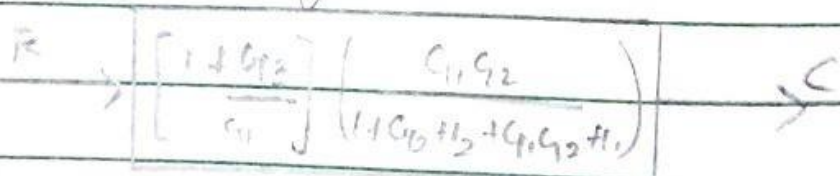 R → [1 + G₃ / G₁] (G₁G₂ / 1+G₂H₂+G₁G₂H₁) → C